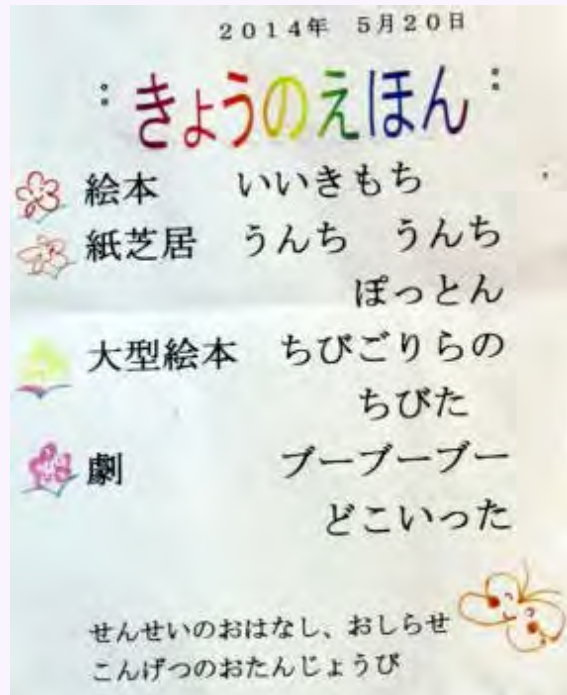 2014年 5月20日
きょうのえほん
絵本 いいきもち
紙芝居 うんち うんち
ぽっとん
大型絵本 ちびごりらの
ちびた
劇 ブーブーブー
どこいった
せんせいのおはなし、おしらせ
こんげつのおたんじょうび